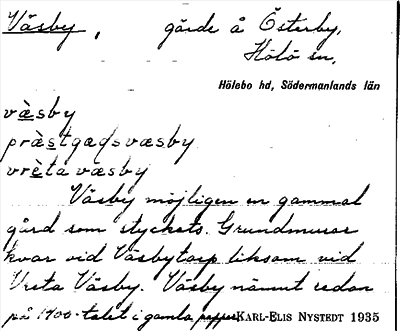 Väsby, gärde å Österby,
Hölö sn,
Hölebo hd, Södermanlands län
væ̀sby
præ̀stgaḍsvæsby
vrèta væsby
Väsby möjligen en gammal
gård som styckats. Grundmurar
kvar vid Väsbytorp liksom vid
Vreta Väsby. Väsby nämnt redan
på 1700-talet i gamla papper KARL-ELIS NYSTEDT 1935